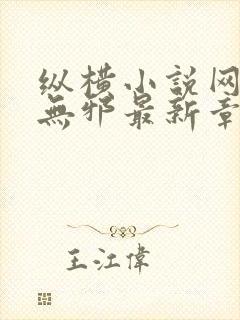 纵横小説网
無邪最新章
王江偉